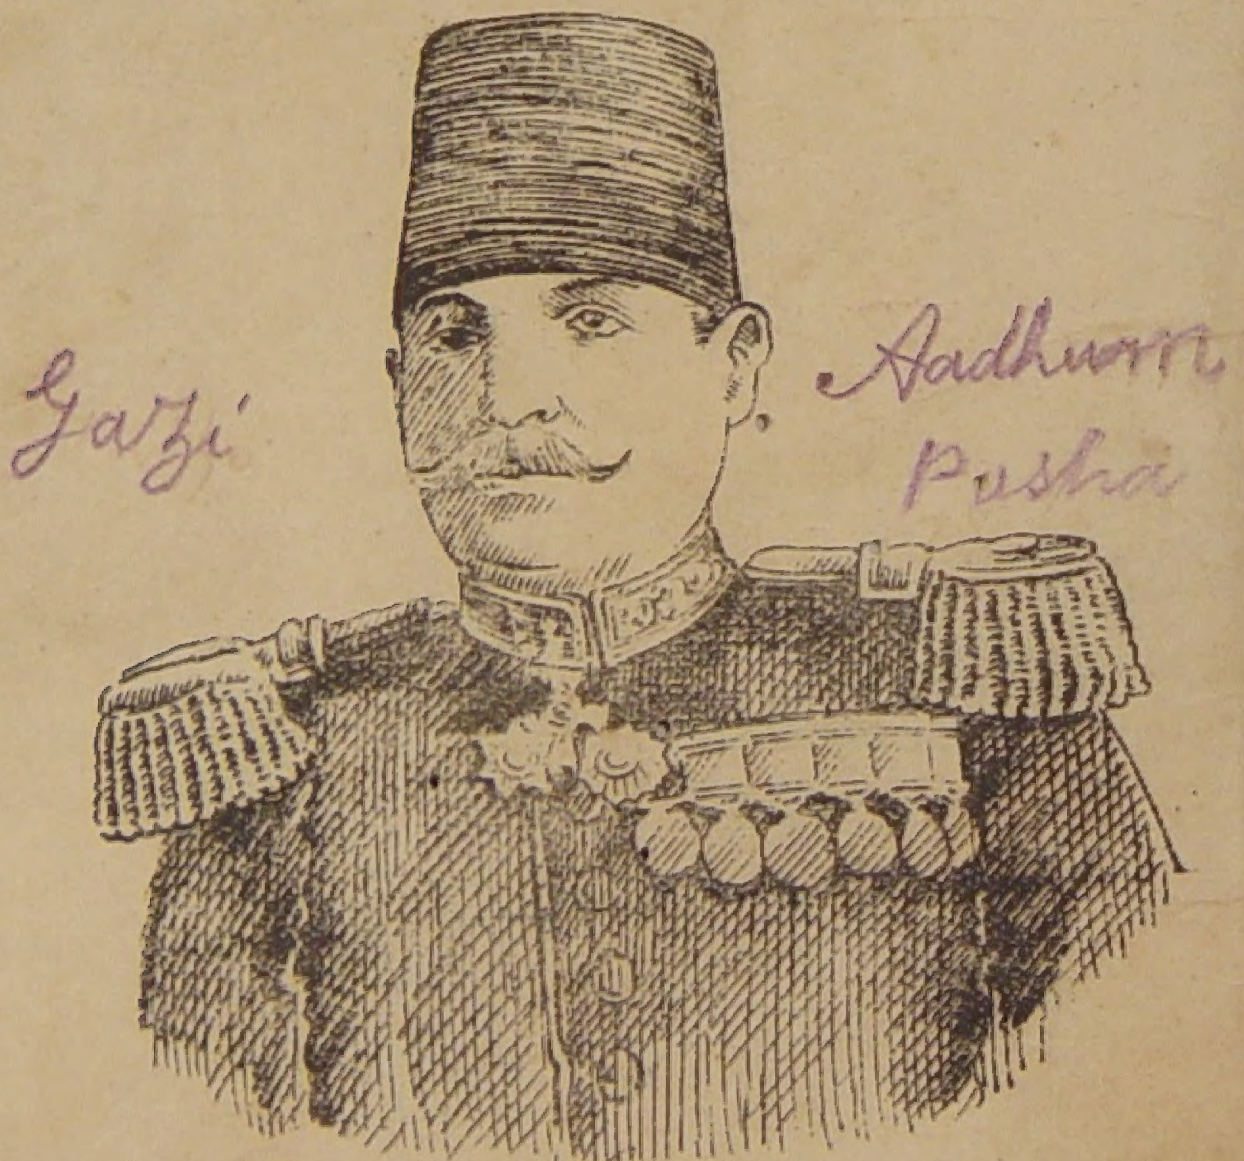 Gazi
Aadhum
Pasha